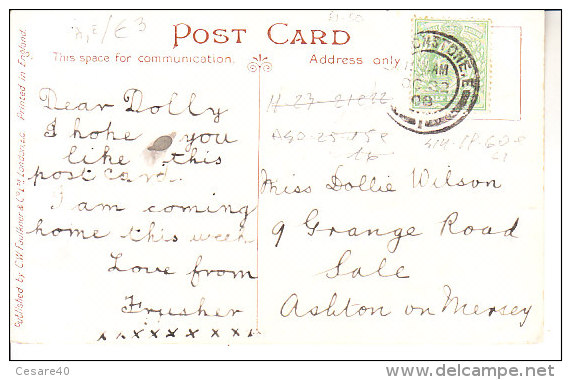 POST CARD
This space for communication.
Address only
Published by C.W. Faulkner & Co Ltd London E.C. Printed in England.
Dear Dolly
I hope you
like this
post card.
I am coming
home this week
Love from
Frusher
x x x x x x x x x
Miss Dollie Wilson
9 Grange Road
Sale
Ashton on Mersey
Cesare40
delcampe.net